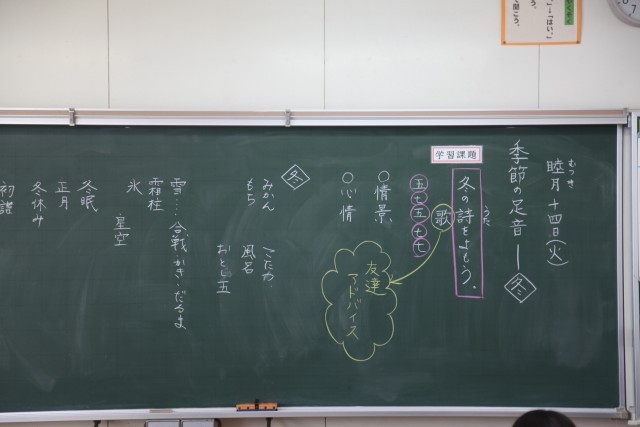 睦月十四日(火)
むつき
季節の足音―冬
学習課題
冬の詩をよもう。
うた
歌
五・七・五・七・七
○情景
○心情
友達
アドバイス
冬
みかん
こたつ
もち
風呂
おとし玉
雪…合戦・かき・だるま
霜柱
氷
星空
冬眠
正月
冬休み
初詣